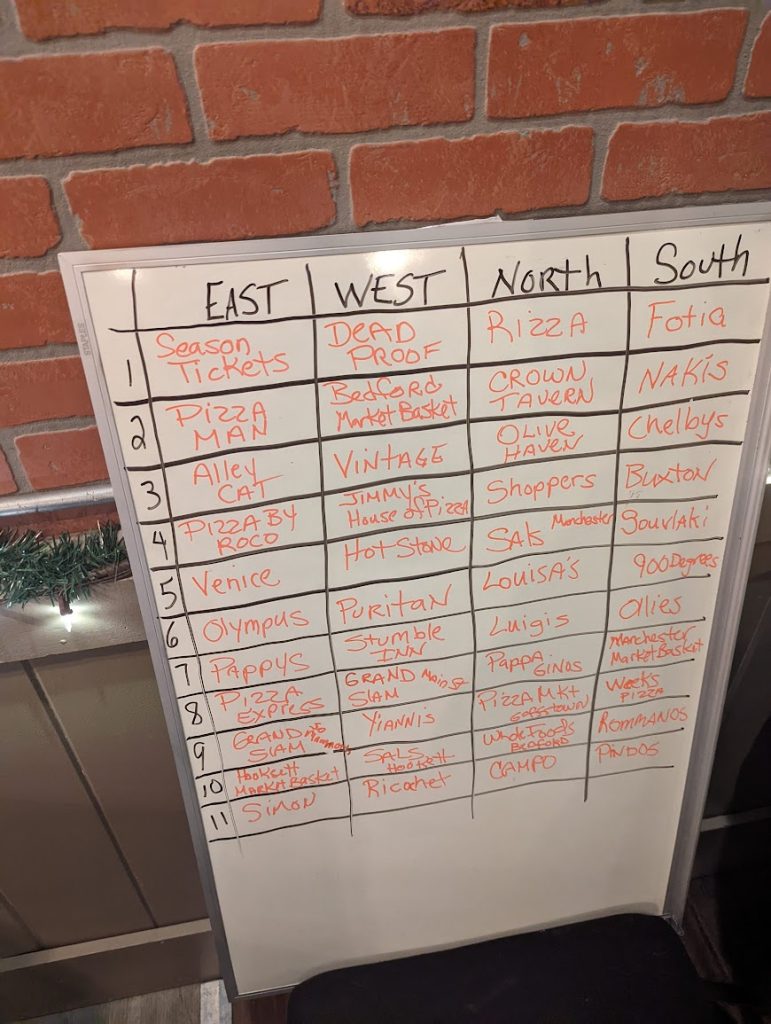 EAST WEST NORTH South
1 Season Tickets DEAD PROOF RIZZA Fotia
2 PIZZA MAN BEDFORD Market Basket CROWN TAVERN NAKIS
3 Alley CAT VINTAGE OLIVE HAVEN Chelbys
4 PIZZA BY ROCO JIMMY'S House of Pizza Shoppers BUXTON
5 Venice Hot Stone SALS Manchester Souvlaki
6 Olympus PURITAN LOUISA'S 900 Degrees
7 PAPPYS Stumble INN Luigis Ollies
8 PIZZA EXPRESS GRAND SLAM Main St PAPPA GINOS Manchester Market Basket
9 GRAND SLAM YIANNIS PIZZA MKT GOFFSTOWN Weeks PIZZA
10 HOOKSETT MARKET BASKET SALS HOOKSETT Whole Foods BEDFORD ROMMANOS
11 SIMON Ricochet CAMPO PINDOS